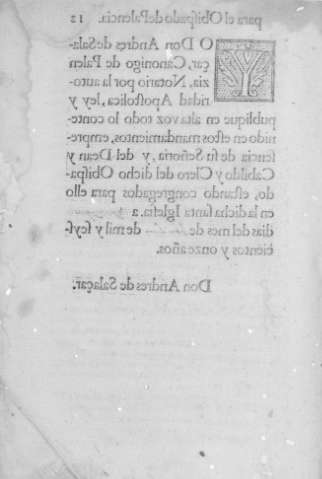 para el Obiſpado de Palencia. 12
YO Don Andres de Sala-
çar, Canonigo de Palen
zia, Notario por la auto-
ridad Apoſtolica, ley y
publique en alta voz todo lo conte-
nido en eſtos mandamientos, en pre-
ſencia de ſu Señoria, y del Dean y
Cabildo y Clero del dicho Obiſpa-
do, eſtando congregados para ello
en la dicha ſanta Igleſia. a
dias del mes de de mil y ſeyſ-
cientos y onze años.
Don Andres de Salaçar.